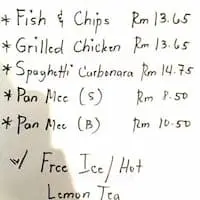 * Fish & Chips Rm 13.65
* Grilled Chicken Rm 13.65
* Spaghetti Carbonara Rm 14.75
* Pan Mee (S) Rm 8.50
* Pan Mee (B) Rm 10.50
w/ Free Ice/Hot
Lemon Tea